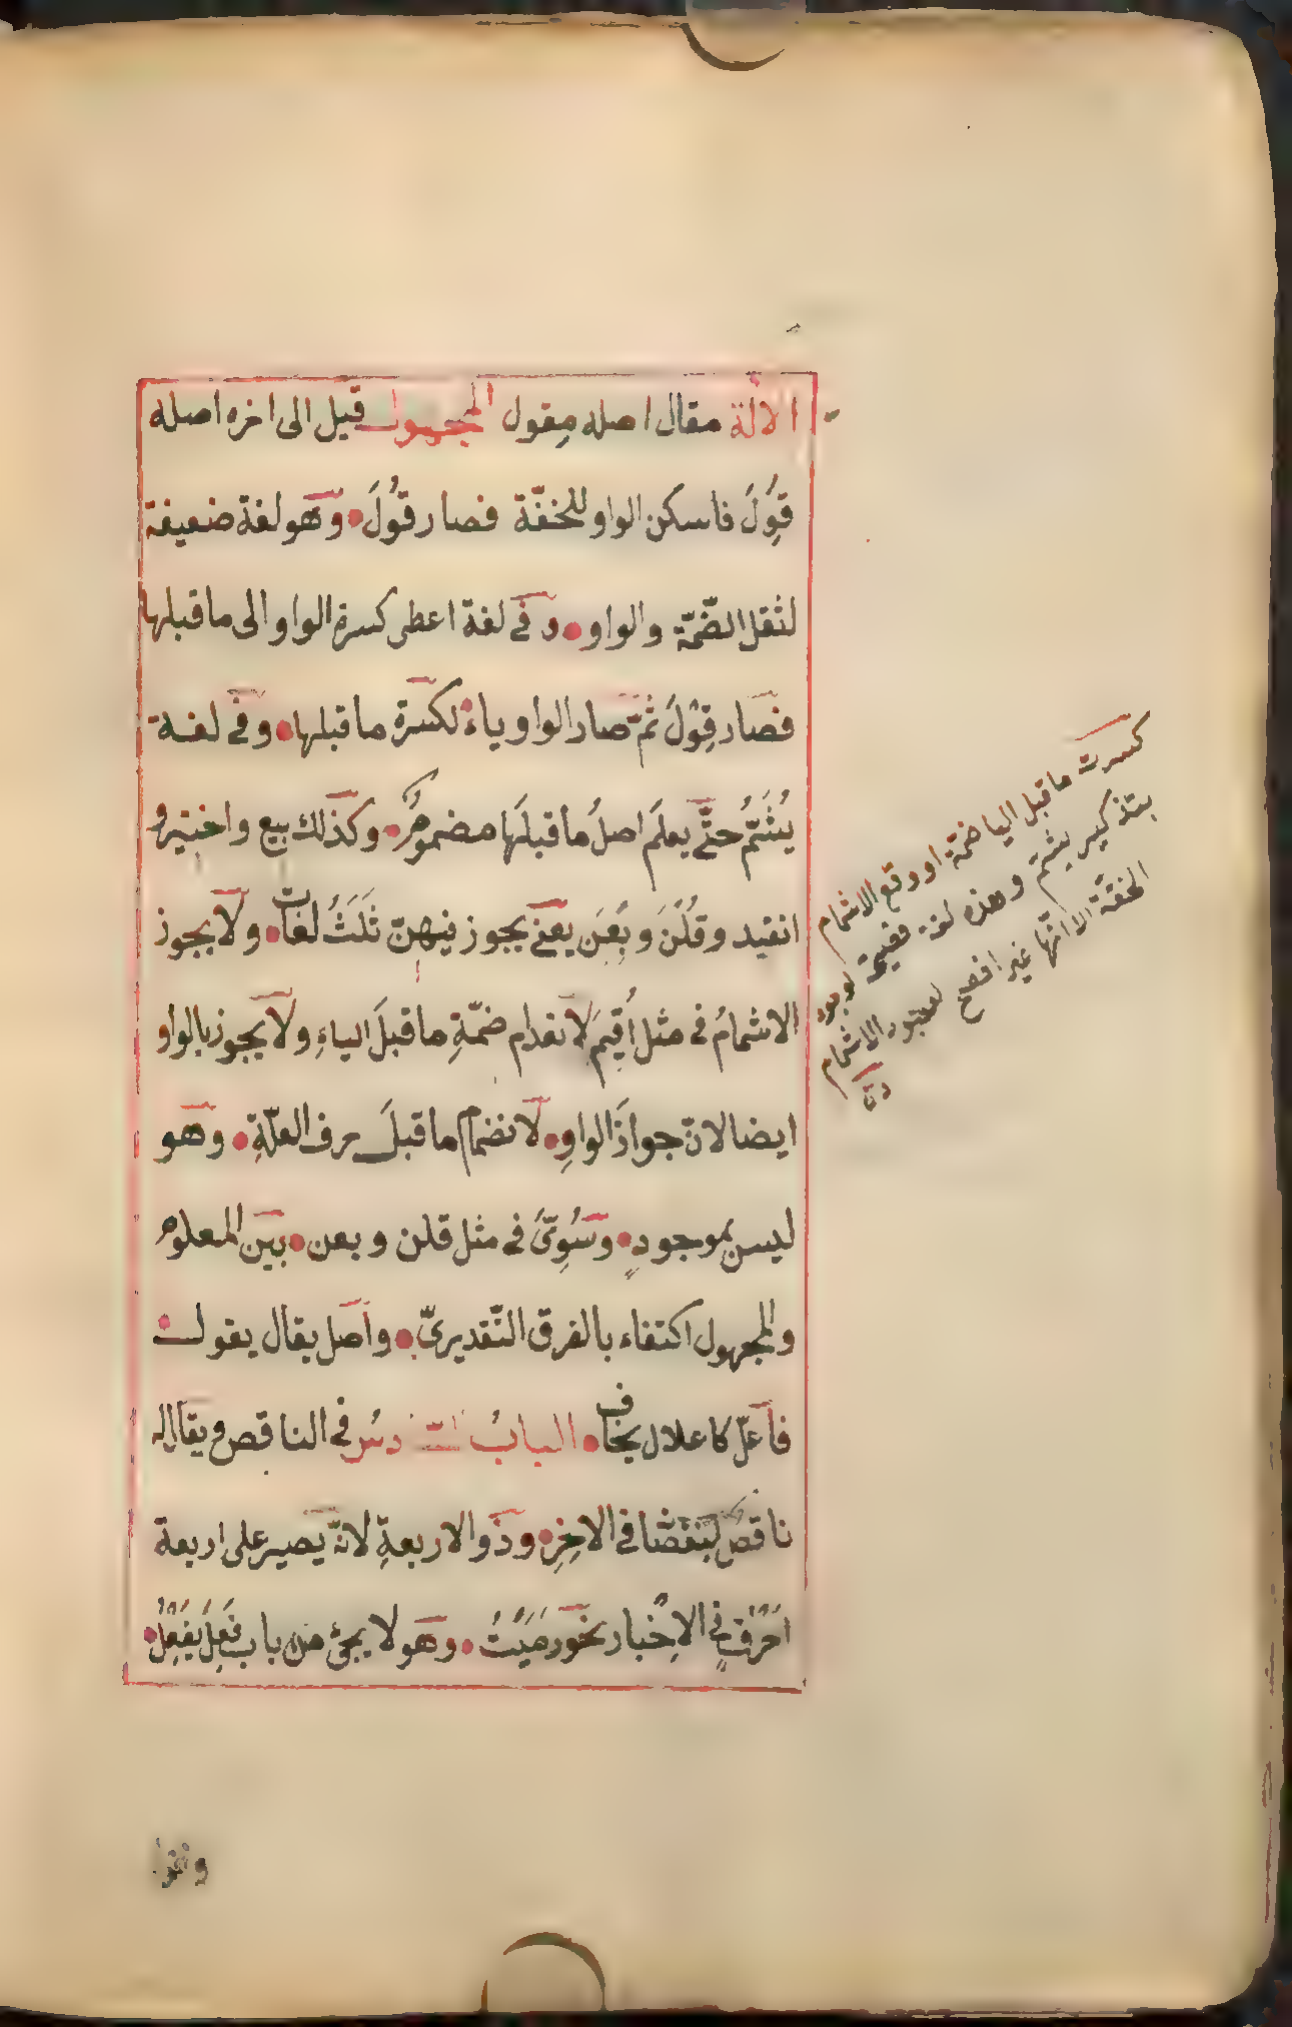 الالة مقال اصله مِقول المجهول قيل الى اخره اصله
قُوِلَ فاسكن الواو للخفّة فصار قُولَ وهو لغة ضعيفة
لثقل الضّمّة والواو وفي لغة اعطى كسرة الواو الى ما قبلها
فصار قِوْلَ ثمّ صار الواو ياءً لكسرة ما قبلها وفي لغة
يُشَمُّ حتّى يعلَم اصلُ ما قبلَها مضمومٌ وكذلك بيع واختير و
انقيد وقُلْنَ وبُعِنَ يعنى يجوز فيهنّ ثَلَثُ لغات ولا يجوز
الاشمامُ في مثل اُقِيمَ لانعدام ضمّةِ ما قبلَ الياءِ ولا يجوز بالواو
ايضا لانّ جوازَ الواوِ لانضمام ما قبلَ حرف العلّةِ وهو
ليس بموجودٍ وسُوِّىَ في مثل قلن وبعن بين المعلوم
والمجهول اكتفاء بالفرق التّقديريّ واصل يقال يقول
فاعلّ كاعلال يخاف البابُ السّادسُ في الناقص ويقال له
ناقصٌ لنقصا في الاخِرِ وذو الاربعةِ لانّه يصير على اربعة
اَحْرُفٍ في الاِخْبار نحو رَمَيْتُ وهو لا يجئ من باب فَعِلَ يَفْعِلُ
كسرت ما قبل اليا ضمّة او وقع الاشمام
بتذكير يشمّ وهذه لغة فصيحة لوجود
الخفّة الا انّها غير افصح الاشمام